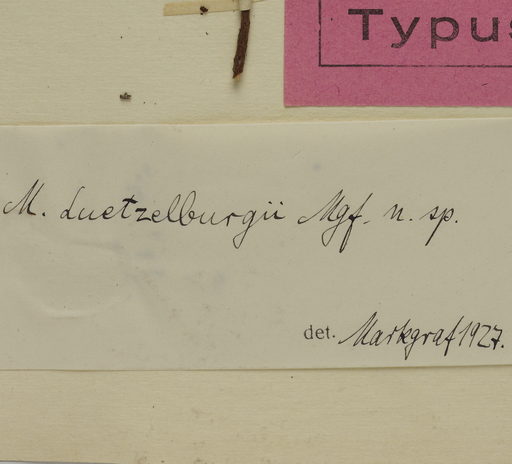 Typus
M. Luetzelburgii Mgf. n. sp.
det. Markgraf 1927.